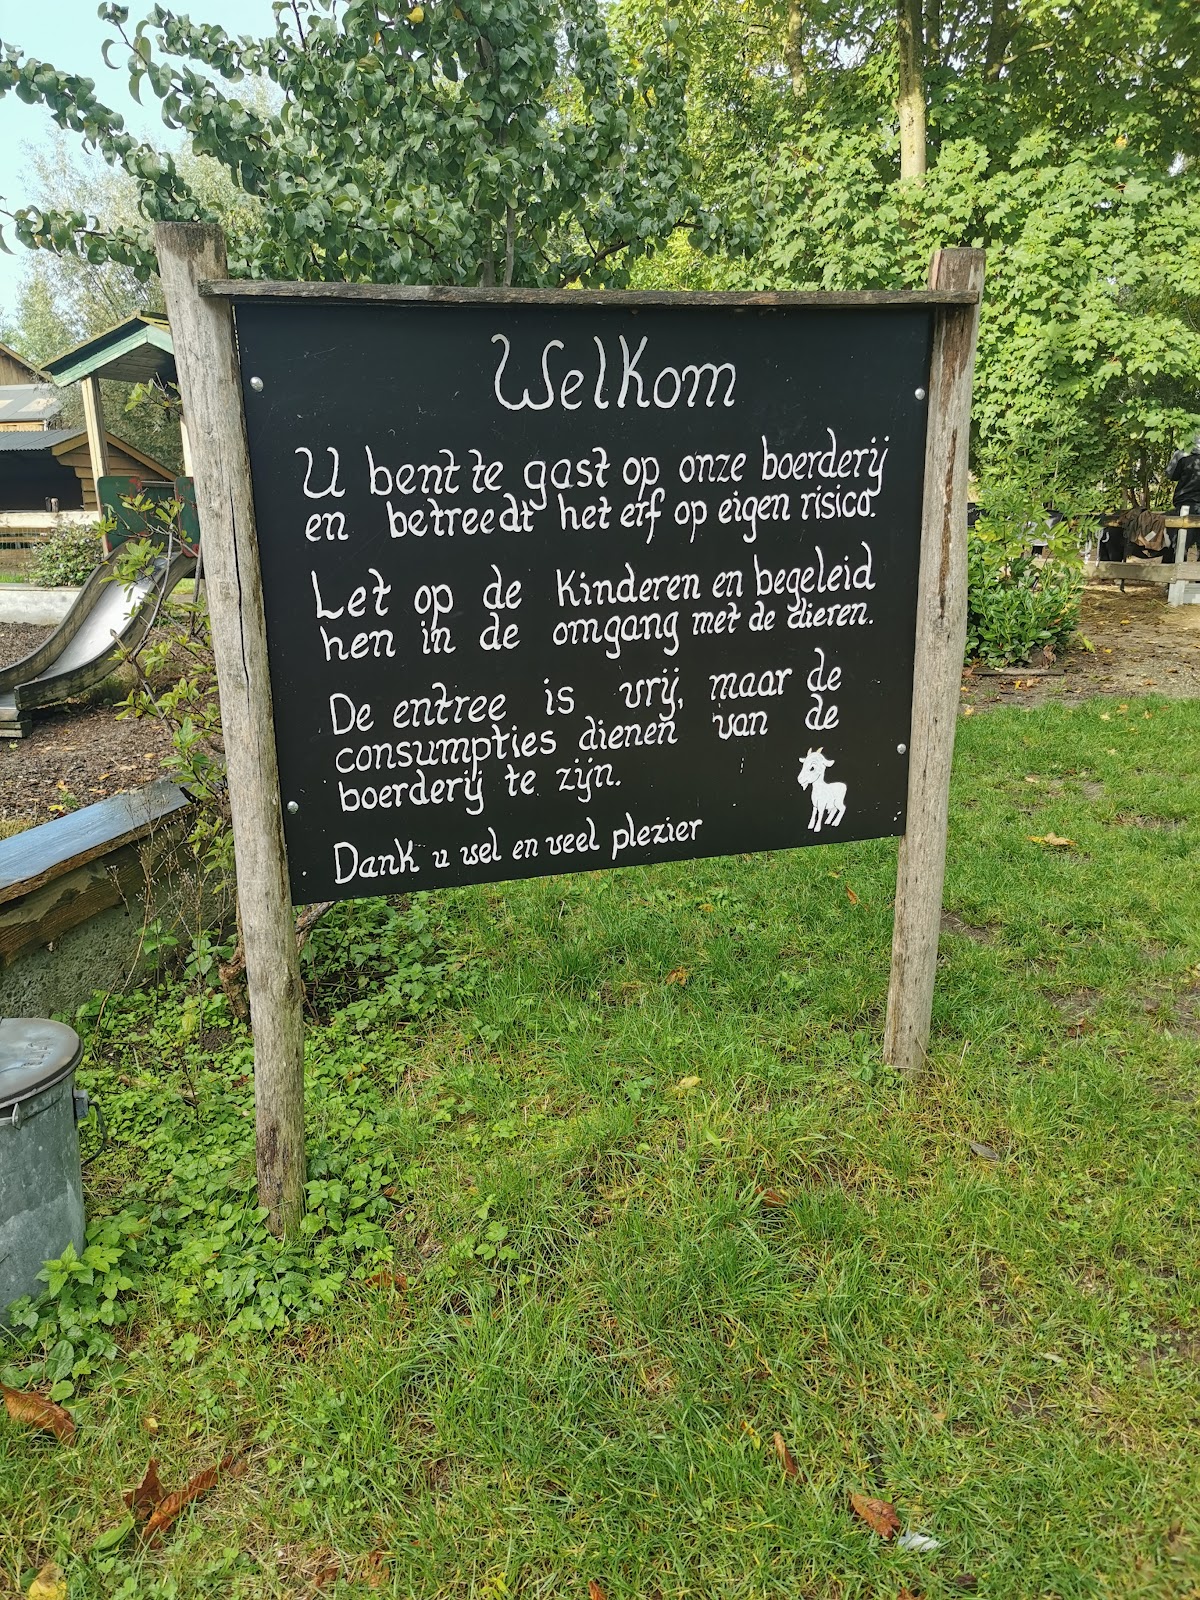 Welkom
U bent te gast op onze boerderij
en betreedt het erf op eigen risico.
Let op de kinderen en begeleid
hen in de omgang met de dieren.
De entree is vrij, maar de
consumpties dienen van de
boerderij te zijn.
Dank u wel en veel plezier